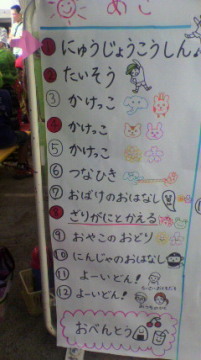 ① にゅうじょうこうしん♪
② たいそう
③ かけっこ
④ かけっこ
⑤ かけっこ
⑥ つなひき
⑦ おばけのおはなし
⑧ ざりがにとかえる
⑨ おやこのおどり
⑩ にんじゃのおはなし
⑪ よーいどん!
⑫ よーいどん!
おべんとう